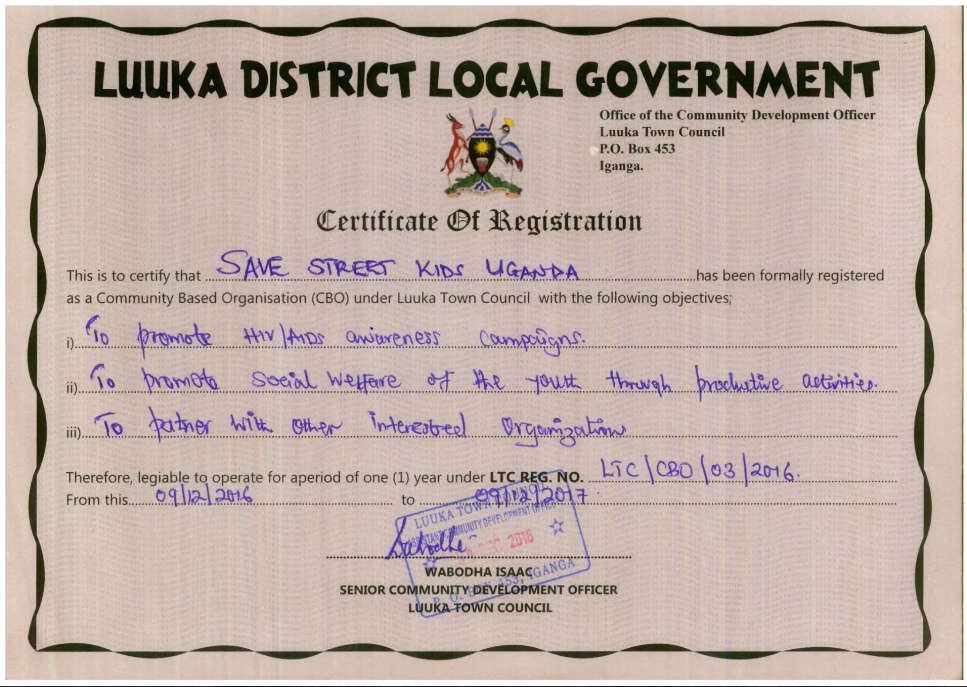 LUUKA DISTRICT LOCAL GOVERNMENT
Office of the Community Development Officer
Luuka Town Council
P.O. Box 453
Iganga.
Certificate Of Registration
This is to certify that SAVE STREET KIDS UGANDA has been formally registered
as a Community Based Organisation (CBO) under Luuka Town Council with the following objectives;
i) To promote HIV/AIDS awareness campaigns.
ii) To promote social welfare of the youth through productive activities.
iii) To partner with other interested Organizations
Therefore, legiable to operate for aperiod of one (1) year under LTC REG. NO. LTC/CBO/03/2016.
From this 09/12/2016 to 09/12/2017.
LUUKA TOWN COUNCIL
ASSISTANT COMMUNITY DEVELOPMENT OFFICER
2016
P. O. BOX 453, IGANGA
WABODHA ISAAC
SENIOR COMMUNITY DEVELOPMENT OFFICER
LUUKA TOWN COUNCIL